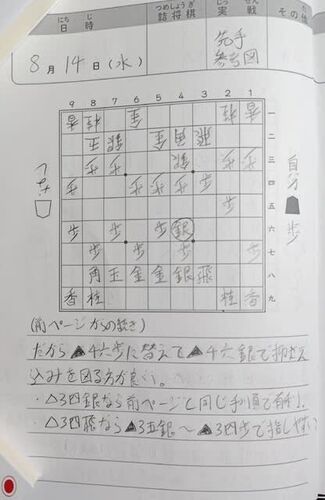 にち じ
日 時
つめしょうぎ
詰将棋
じっ せん
実 戦
その他
8月14日(水)
先手
参考図
9 8 7 6 5 4 3 2 1
香 桂 桂 香
王 銀 金 金 角 飛
歩 歩 銀 歩 歩
歩 歩 歩 歩 歩
歩
歩 歩 歩 銀
歩 歩 歩 歩
角 玉 金 金 銀 飛
香 桂 桂 香
一
二
三
四
五
六
七
八
九
自分
歩
なし
(前ページからの続き)
だから▲4六歩に替えて▲4六銀で押さえ
込みを図る方が良い。
・△3四銀なら前ページと同じ手順で有利。
・△3四歩なら▲3五銀〜▲3四歩で指しやすい